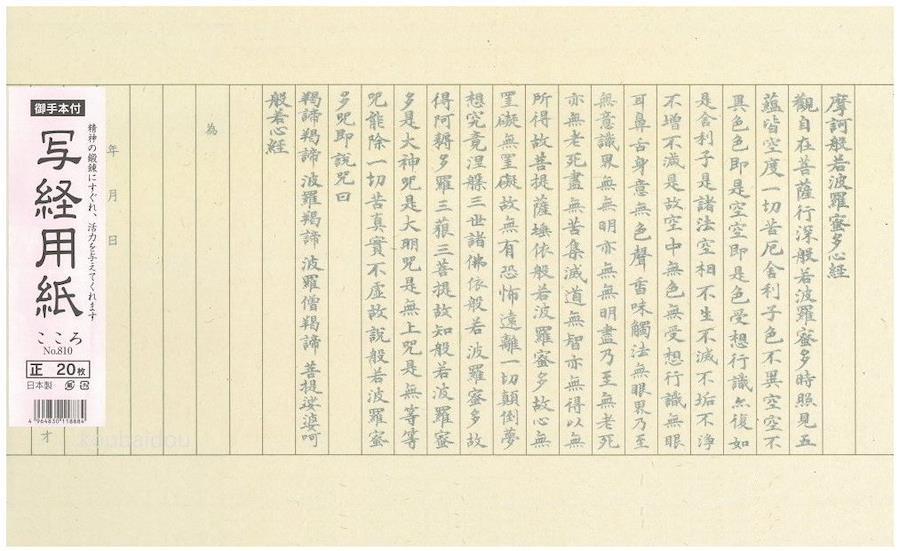 摩訶般若波羅蜜多心経
觀自在菩薩行深般若波羅蜜多時照見五
蘊皆空度一切苦厄舎利子色不異空空不
異色色即是空空即是色受想行識亦復如
是舎利子是諸法空相不生不滅不垢不浄
不増不減是故空中無色無受想行識無眼
耳鼻舌身意無色聲香味觸法無眼界乃至
無意識界無無明亦無無明盡乃至無老死
亦無老死盡無苦集滅道無智亦無得以無
所得故菩提薩埵依般若波羅蜜多故心無
罣礙無罣礙故無有恐怖遠離一切顛倒夢
想究竟涅槃三世諸佛依般若波羅蜜多故
得阿耨多羅三藐三菩提故知般若波羅蜜
多是大神呪是大明呪是無上呪是無等等
呪能除一切苦真實不虚故説般若波羅蜜
多呪即説呪曰
羯諦羯諦 波羅羯諦 波羅僧羯諦 菩提娑婆呵
般若心経
為
年 月 日
御手本付
精神の鍛錬にすぐれ、活力を与えてくれます
写経用紙
こころ
No.810
正 20枚
日本製
4 964830 118884
オ
koubaidou